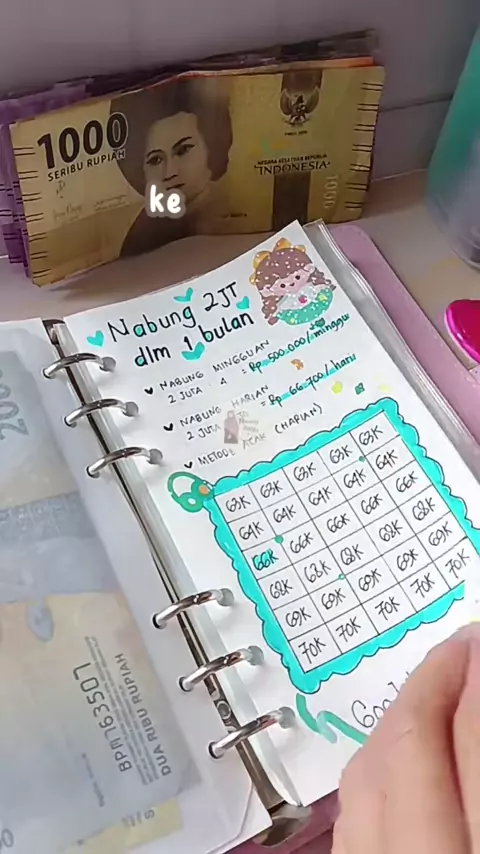 1000
SERIBU RUPIAH
NEGARA KESATUAN REPUBLIK
INDONESIA
ke
Nabung 2JT
dlm 1 bulan
NABUNG MINGGUAN
2 JUTA : 4 = Rp 500.000/minggu
NABUNG HARIAN
2 JUTA = Rp 66.700/hari
METODE ACAK (HARIAN)
63K 63K 63K 63K 63K
64K 64K 64K 64K 64K
66K 66K 66K 66K 66K
68K 68K 68K 68K 68K
69K 69K 69K 69K 69K
70K 70K 70K 70K 70K
BPA763507
DUA RIBU RUPIAH